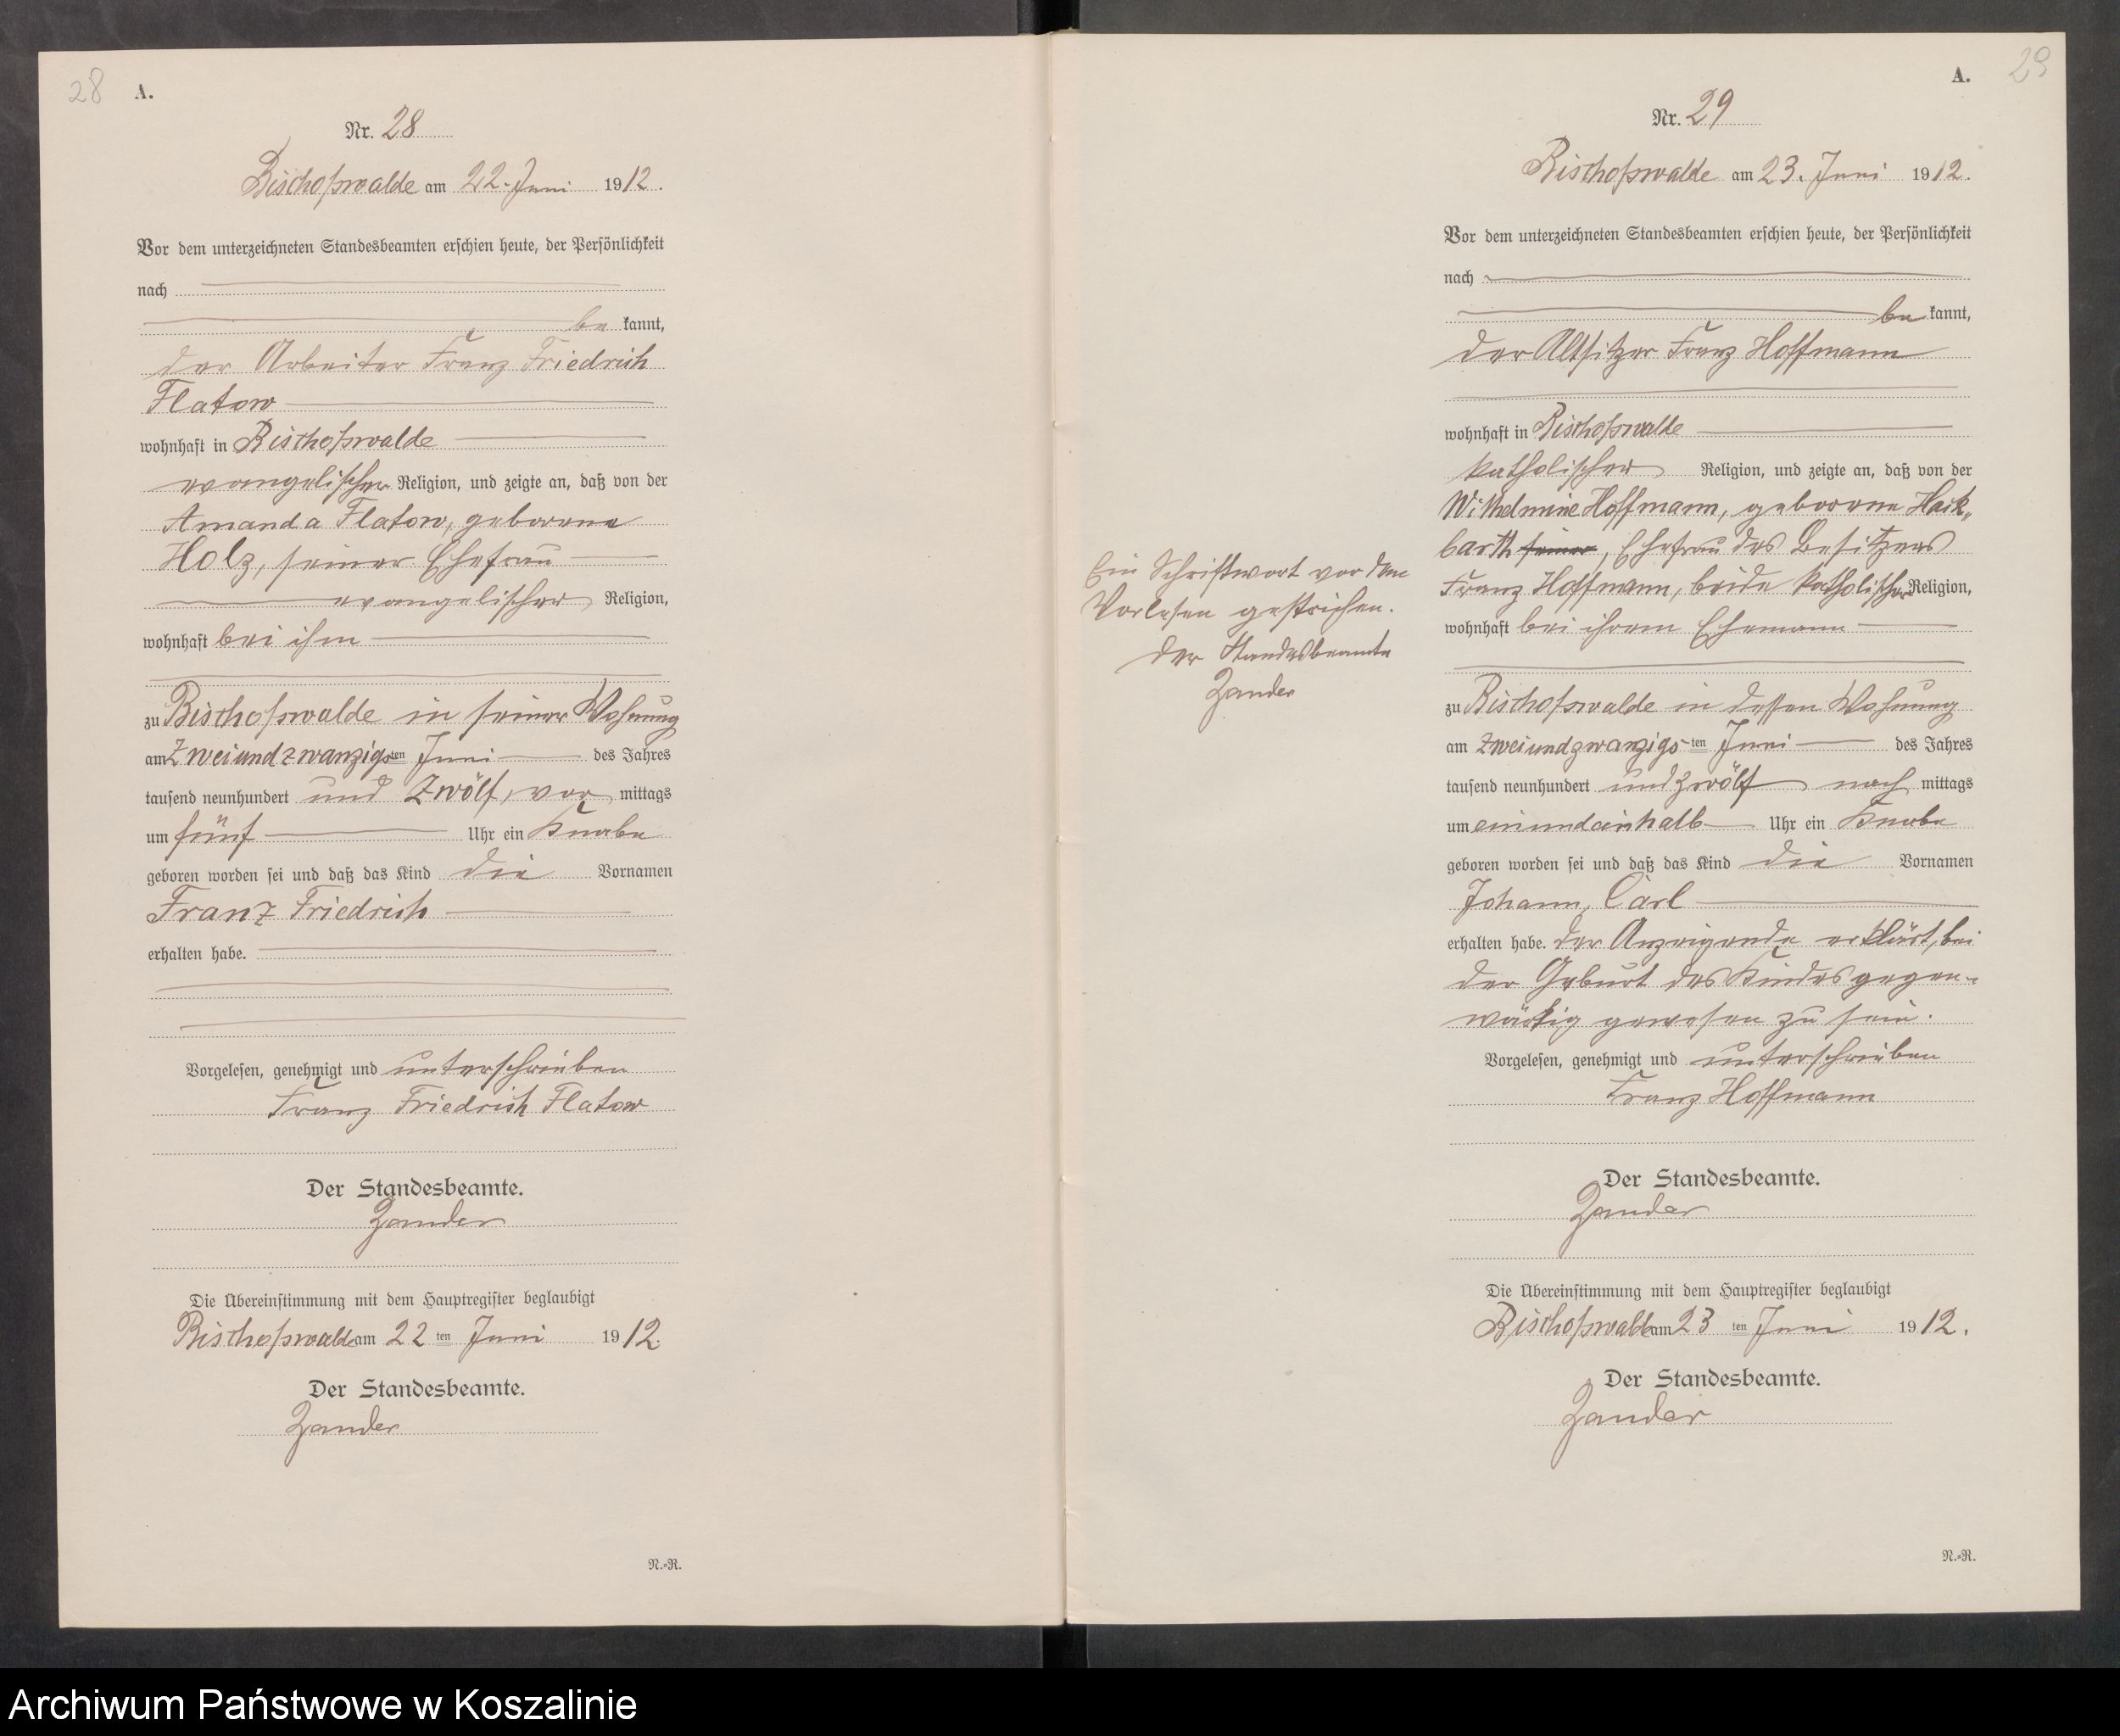 28
A.
Nr. 28
Bischofswalde am 22. Juni 1912.
Vor dem unterzeichneten Standesbeamten erschien heute, der Persönlichkeit
nach
be kannt,
der Arbeiter Franz Friedrich
Flatow
wohnhaft in Bischofswalde
evangelischer Religion, und zeigte an, daß von der
Amanda Flatow, geborene
Holz, seiner Ehefrau
evangelischer Religion,
wohnhaft bei ihm
zu Bischofswalde in seiner Wohnung
am Zweiundzwanzigsten Juni des Jahres
tausend neunhundert und Zwölf, vor mittags
um fünf Uhr ein Knabe
geboren worden sei und daß das Kind die Vornamen
Franz Friedrich
erhalten habe.
Vorgelesen, genehmigt und unterschrieben
Franz Friedrich Flatow
Der Standesbeamte.
Zander
Die Übereinstimmung mit dem Hauptregister beglaubigt
Bischofswalde am 22 ten Juni 1912.
Der Standesbeamte.
Zander
N.-R.
29
A.
Nr. 29
Bischofswalde am 23. Juni 1912.
Vor dem unterzeichneten Standesbeamten erschien heute, der Persönlichkeit
nach
be kannt,
der Altsitzer Franz Hoffmann
wohnhaft in Bischofswalde
katholischer Religion, und zeigte an, daß von der
Wilhelmine Hoffmann, geborene Hack„
barth seiner, Ehefrau des Besitzers
Franz Hoffmann, beide katholischer Religion,
wohnhaft bei ihrem Ehemann
zu Bischofswalde in dessen Wohnung
am zweiundzwanzigs ten Juni des Jahres
tausend neunhundert und zwölf nach mittags
um einundeinhalb Uhr ein Knabe
geboren worden sei und daß das Kind die Vornamen
Johann, Carl
erhalten habe. Der Anzeigende erklärt, bei
der Geburt des Kindes gegen-
wärtig gewesen zu sein.
Vorgelesen, genehmigt und unterschrieben
Franz Hoffmann
Der Standesbeamte.
Zander
Die Übereinstimmung mit dem Hauptregister beglaubigt
Bischofswalde am 23 ten Juni 1912.
Der Standesbeamte.
Zander
N.-R.
Ein Schriftwort vor dem
Vorlesen gestrichen.
Der Standesbeamte
Zander
Archiwum Państwowe w Koszalinie